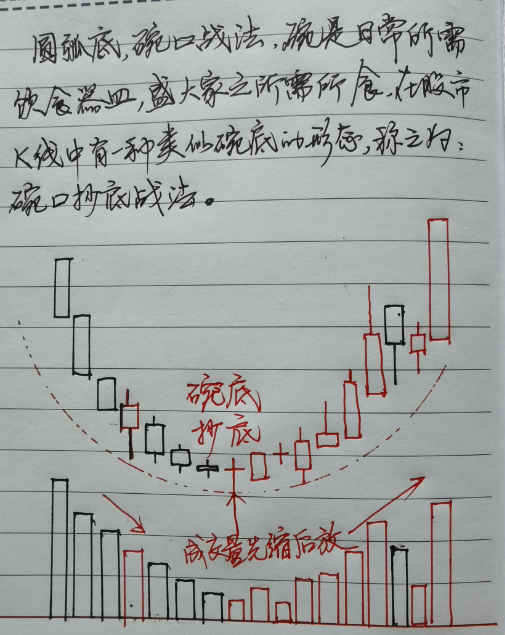 圆弧底,碗口战法,碗是日常所需
饮食器皿,盛大家之所需所食、在股市
K线中有一种类似碗底的形态,称之为:
碗口抄底战法。
碗底
抄底
成交量先缩后放